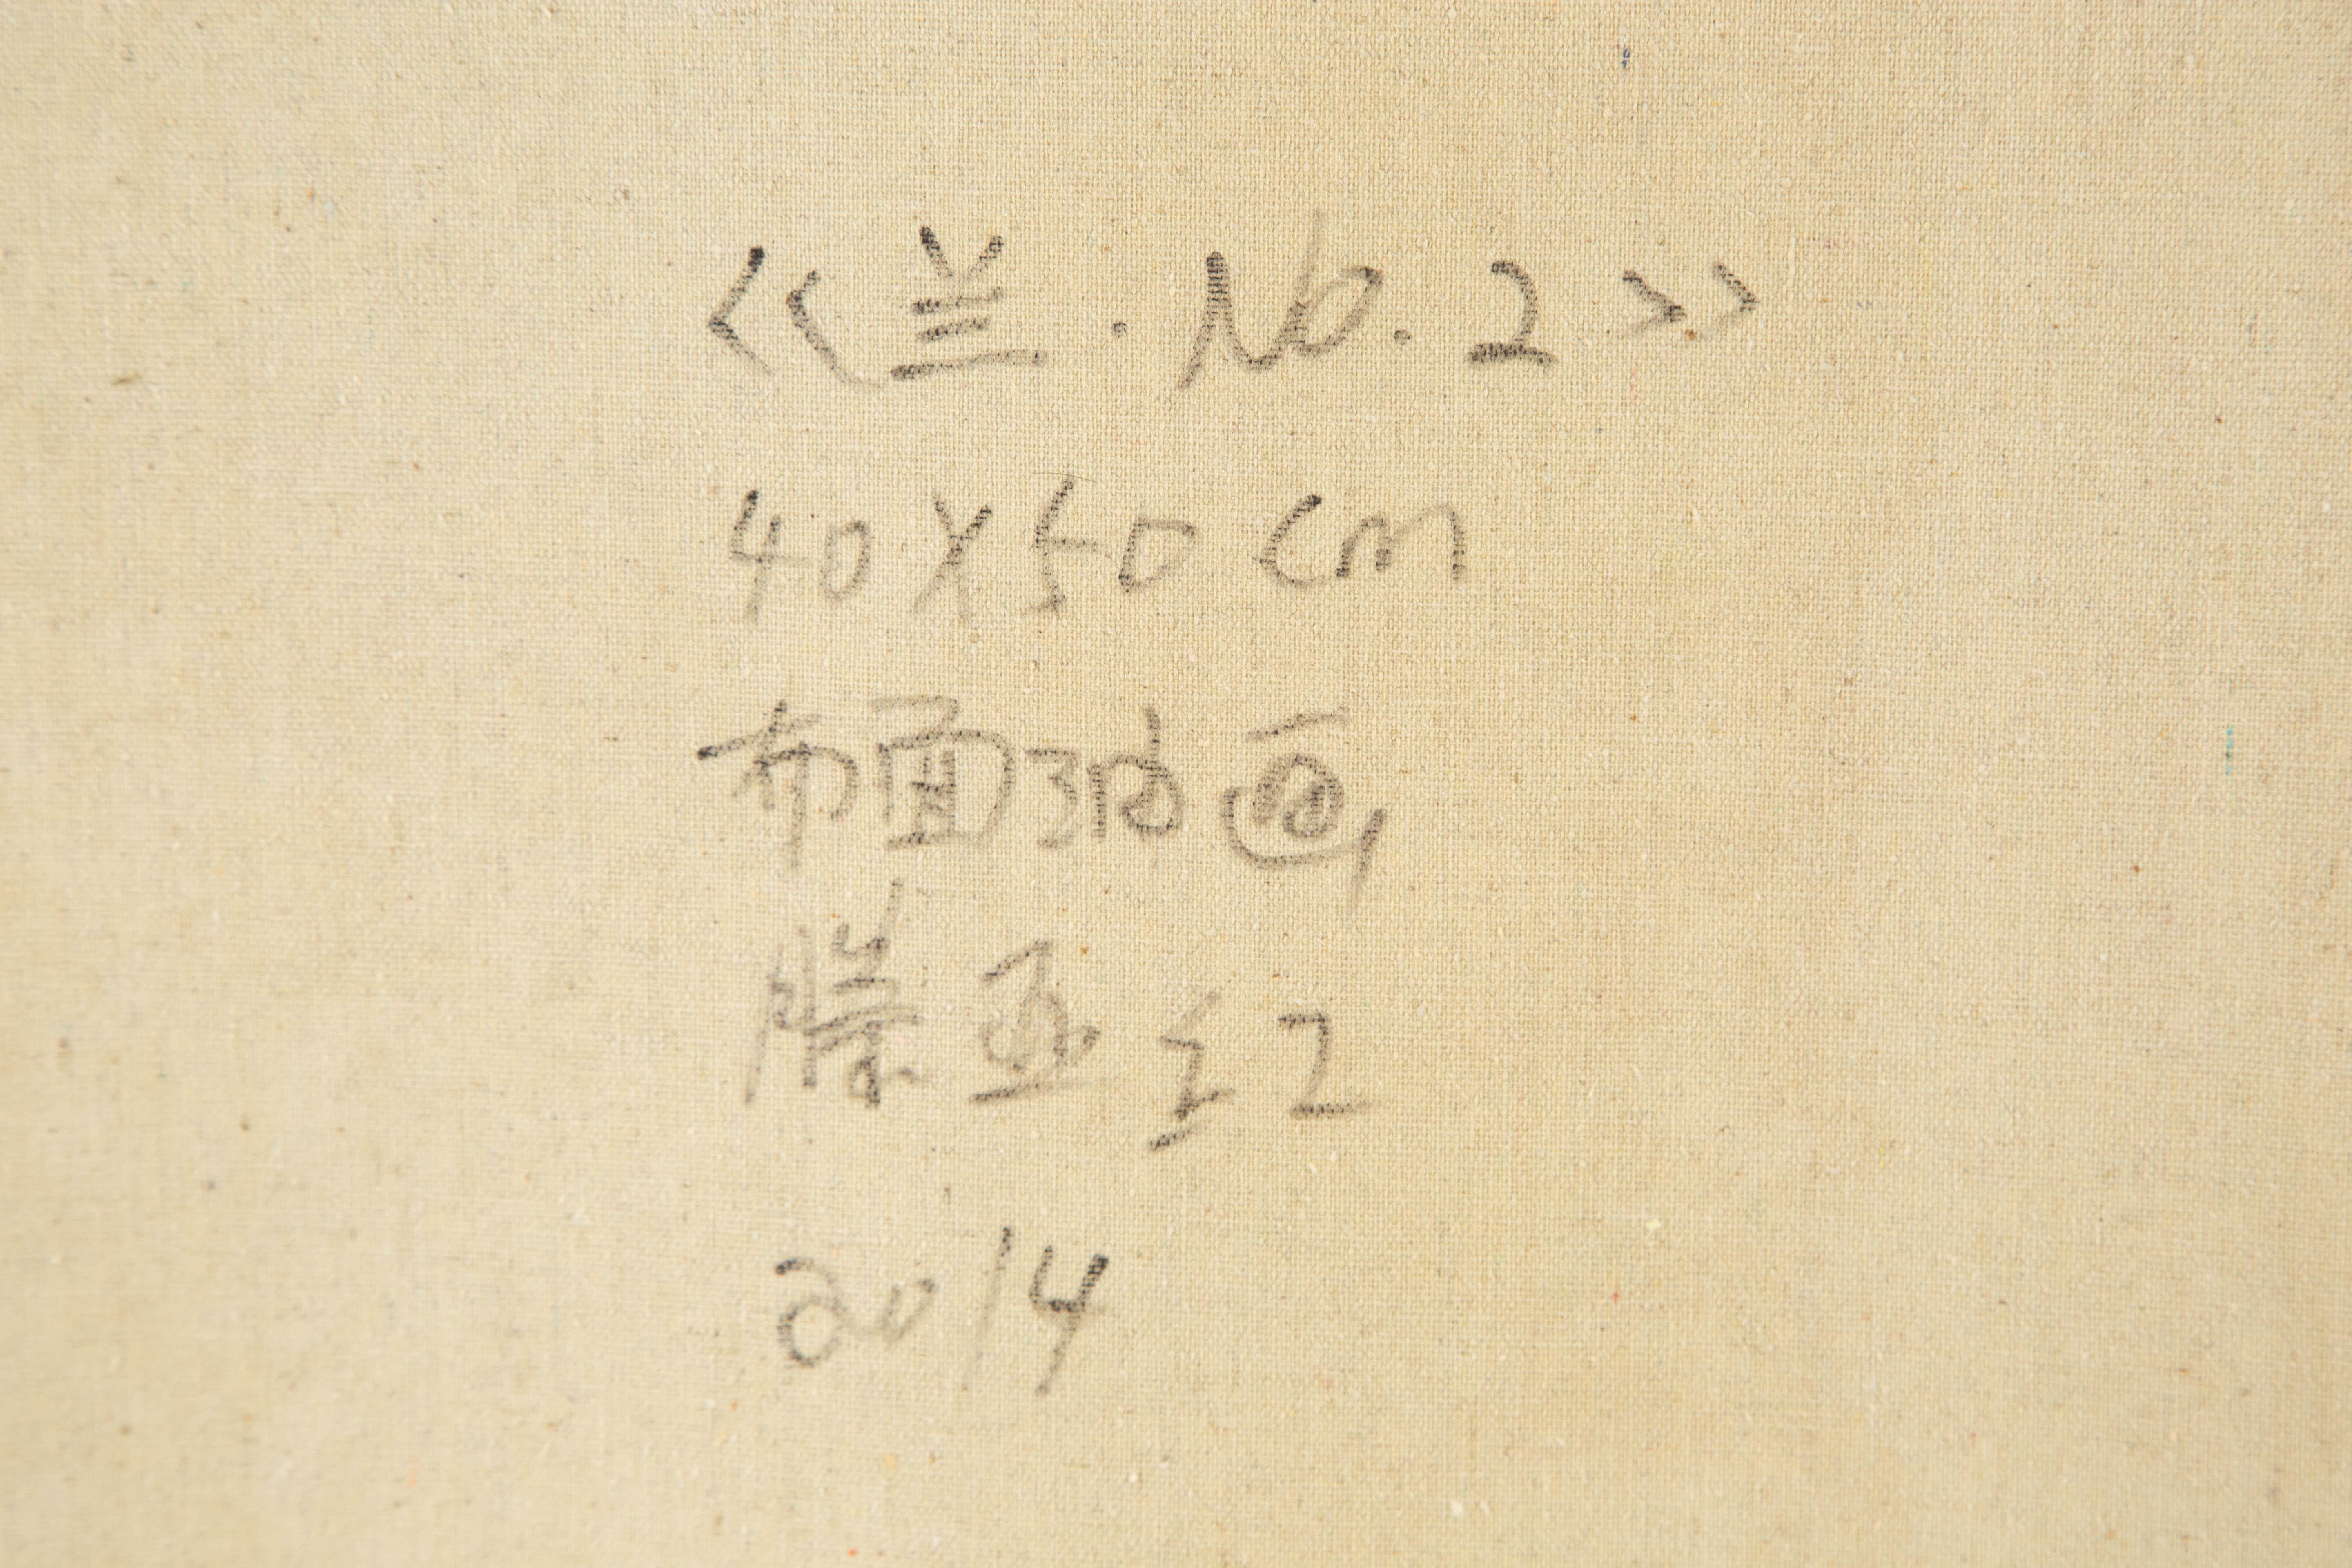 《兰·No.2》
40x50cm
布面油画
滕 红
2014